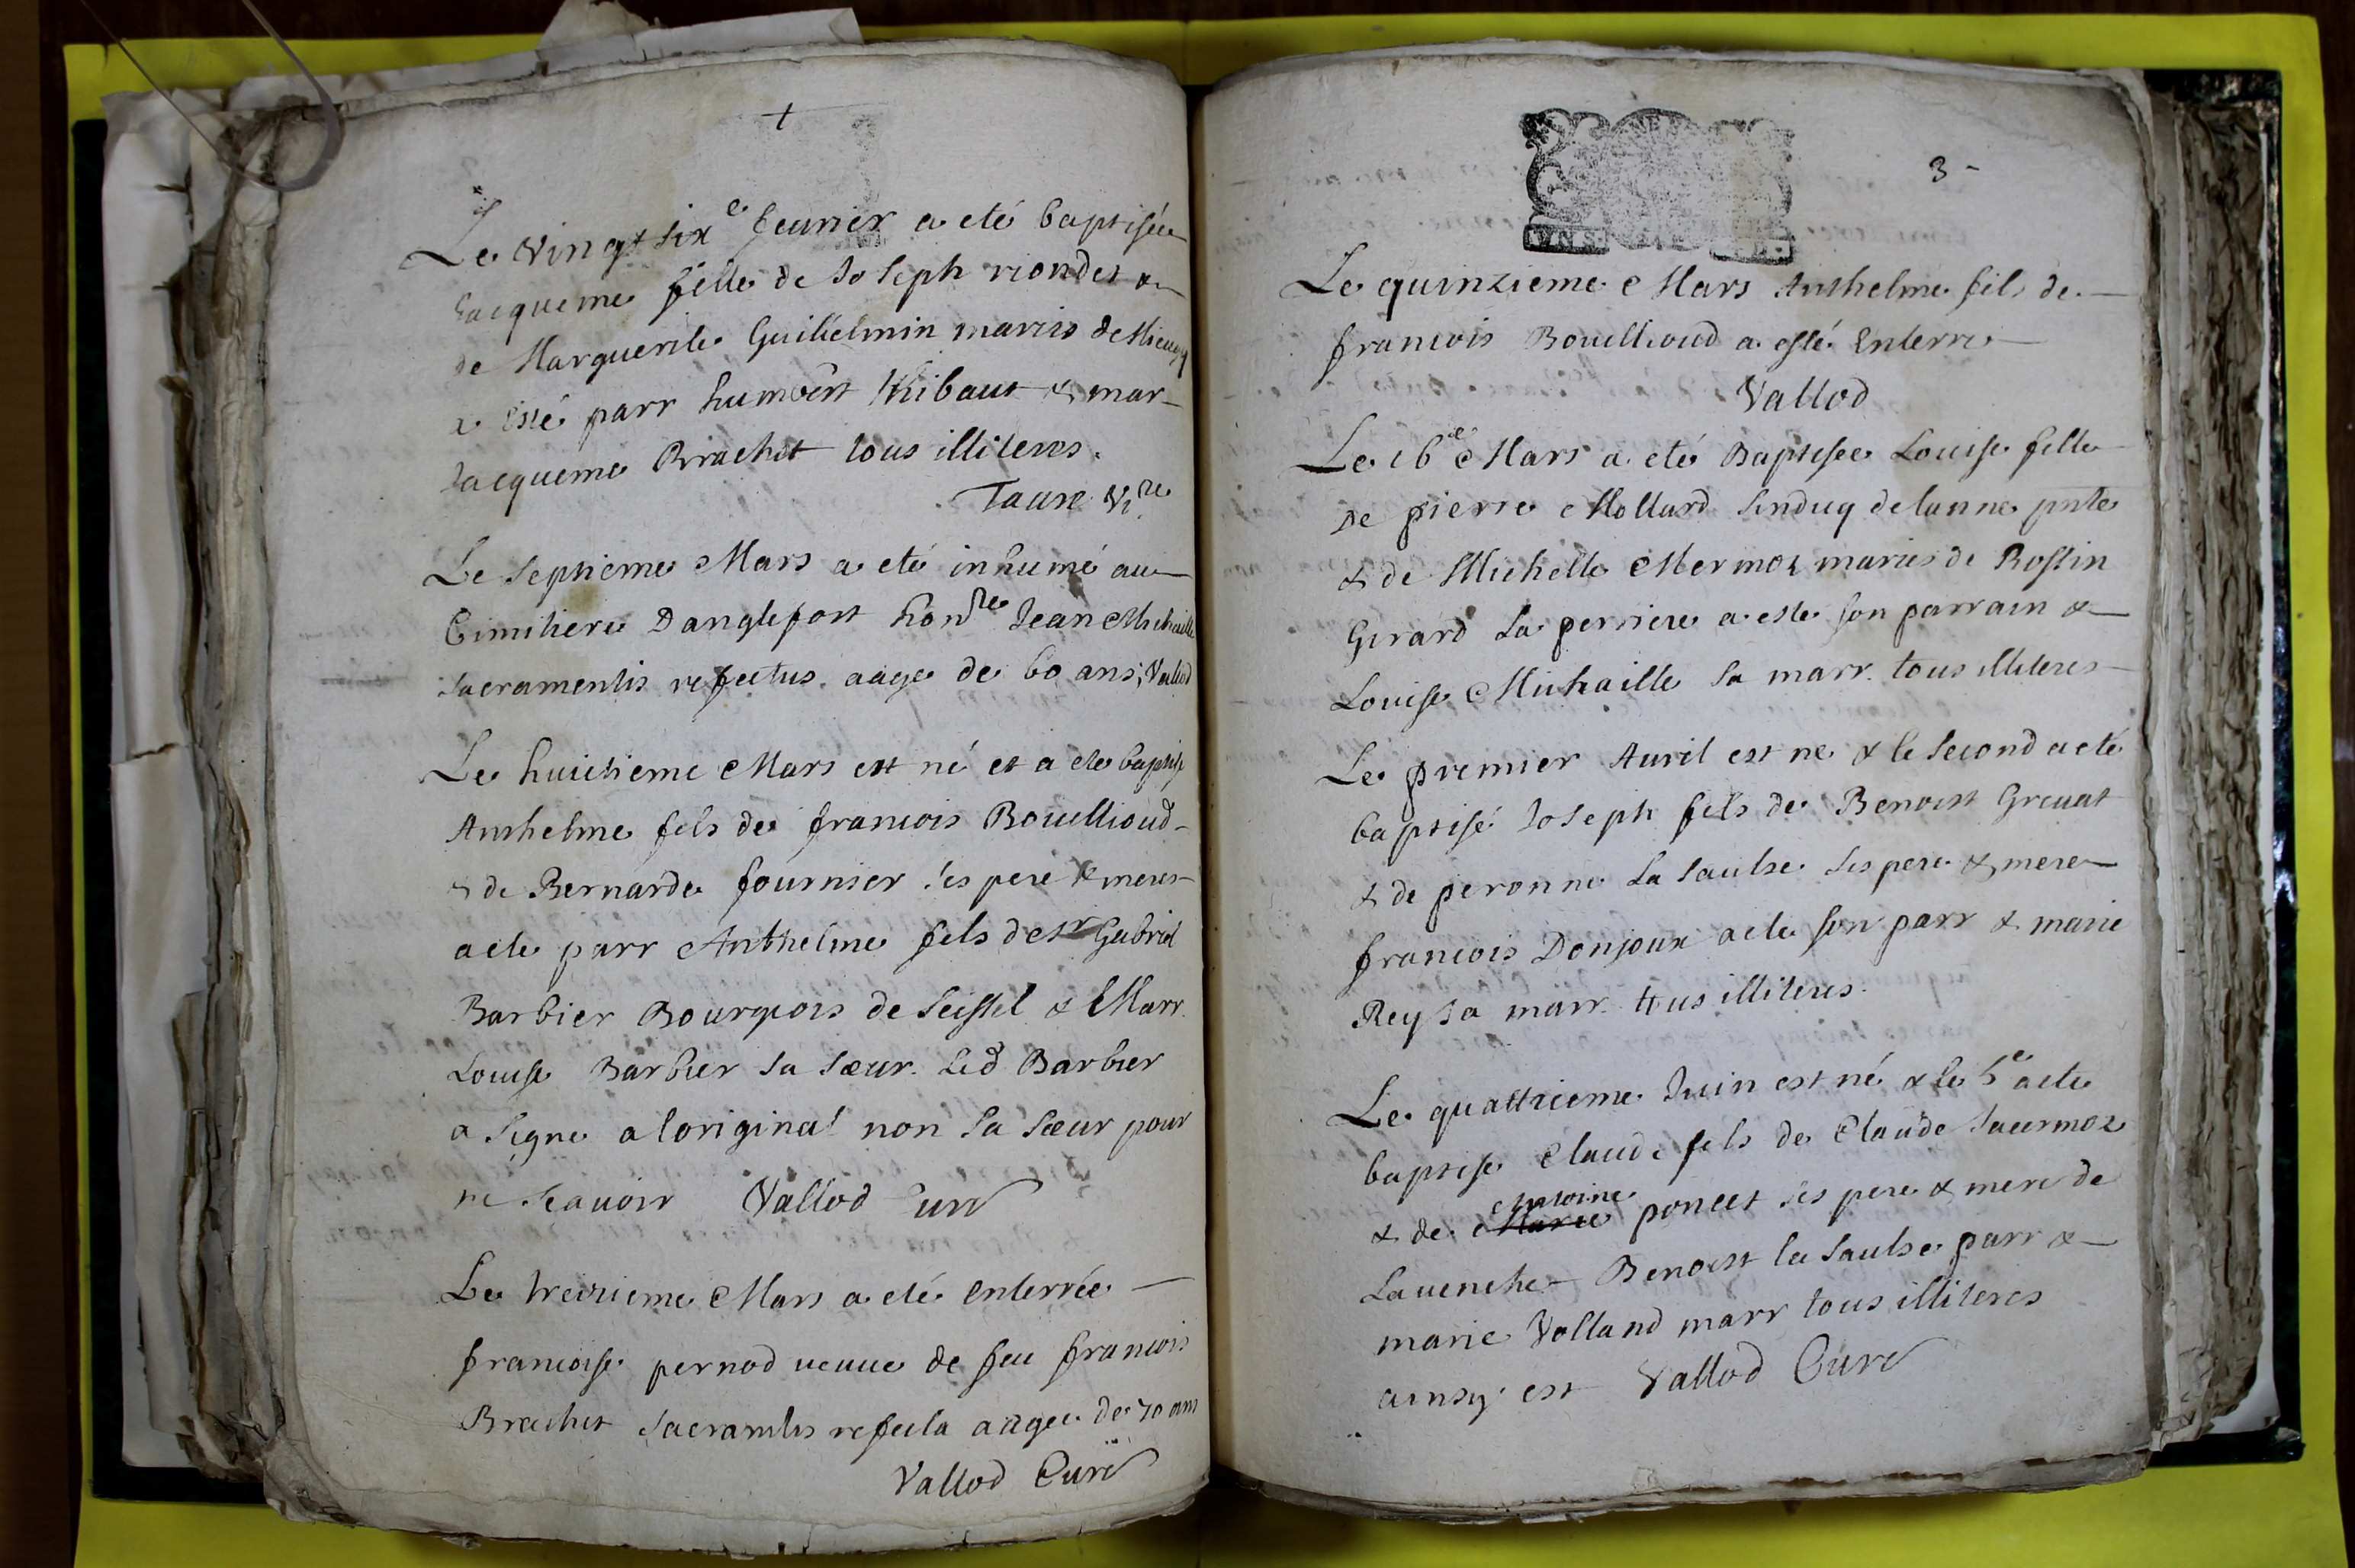 +
Le vingt six e feurier a eté baptisée
Jacqueme fille de Joseph riondet &
de Marguerite Guillelmin mariés de Mieugy
a esté parr humbert thibaut & mar
Jacqueme Brachet tous illiteres.
Taure Vi re
Le septieme Mars a eté inhumé au
Cimitiere Danglefort hon ble Jean Michaille
sacramentis refectus aage de 60 ans; Vallod
Le huictieme Mars est né et a ete baptisé
Anthelme fils de francois Bouellioud
& de Bernarde fournier ses pere & mere
a ete parr Anthelme fils de sr Gabriel
Barbier Bourgeois de Seissel & Marr.
Louise Barbier sa sœur. led Barbier
a signe a loriginal non sa sœur pour
ne scauoir Vallod Curé
Le treizieme Mars a eté enterrée
francoise pernod veuue de feu francois
Brachet sacramtis refecta aagee de 70 ans
Vallod Curé
3 -
Le quinzieme Mars Anthelme fils de
francois Bouellioud a esté Enterré
Vallod
Le 16 e Mars a eté Baptisee Louise fille
De pierre Mollard sinduq de lanne pnte
& de Michelle Mermoz mariés de Rostin
Girard La perriere a este son parrain &
Louise Michaille sa marr. tous illiteres
Le premier Auril est ne & le second a eté
baptisé Joseph fils de Benoist Greuat
& de peronne La Saulse ses pere & mere
francois Donjoux a ete son parr & marie
Rey sa marr. tous illiteres.
Le quattrieme Juin est né & le 5 e a ete
baptise Claude fils de Claude Jacermoz
Antoine
& de Marie poncet ses pere & mere de
Lauenche Benoist la Saulse parr &
marie Volland marr tous illiteres
ainsy est Vallod Curé